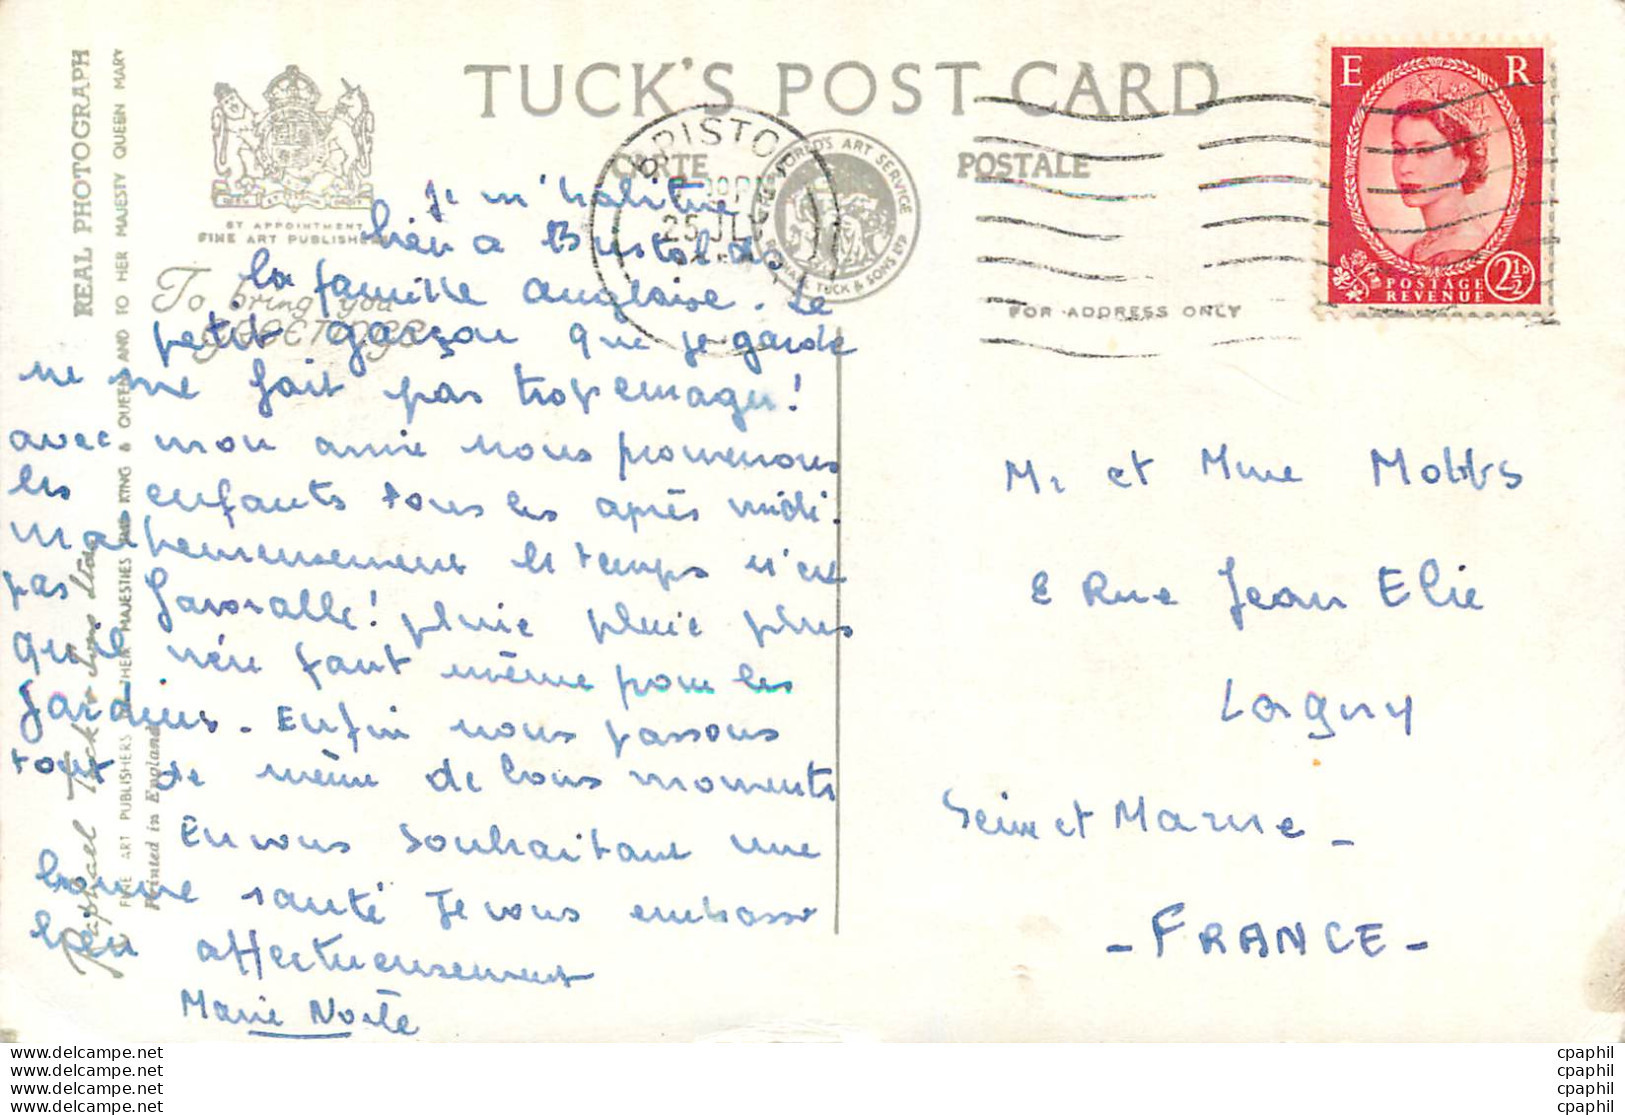 TUCK'S POST CARD
CARTE POSTALE
BY APPOINTMENT
FINE ART PUBLISHERS
To bring you
GREETINGS
REAL PHOTOGRAPH
FINE ART PUBLISHERS TO THEIR MAJESTIES THE KING & QUEEN AND TO HER MAJESTY QUEEN MARY
Raphael Tuck & Sons Ltd
Printed in England
BRISTOL
25 JL
WORLD'S ART SERVICE
RAPHAEL TUCK & SONS LTD
FOR ADDRESS ONLY
E R
POSTAGE
REVENUE
2½D
Je m'habitue
bien a Bristol
la famille anglaise. Le
petit garçon que je garde
ne me fait pas trop enrager!
avec mon amie nous promenons
les enfants tous les après midi.
Malheureusement le temps n'est
pas favorable! pluie pluie plus
qu'il n'en faut même pour les
Jardins. Enfin nous passons
tout de même de bons moments
En vous souhaitant une
bonne santé Je vous embrasse
bien affectueusement
Marie
Mr et Mme Mobbs
8 Rue Jean Elie
Lagny
Seine et Marne _
- FRANCE -
www.delcampe.net
www.delcampe.net
www.delcampe.net
www.delcampe.net
cpaphil
cpaphil
cpaphil
cpaphil